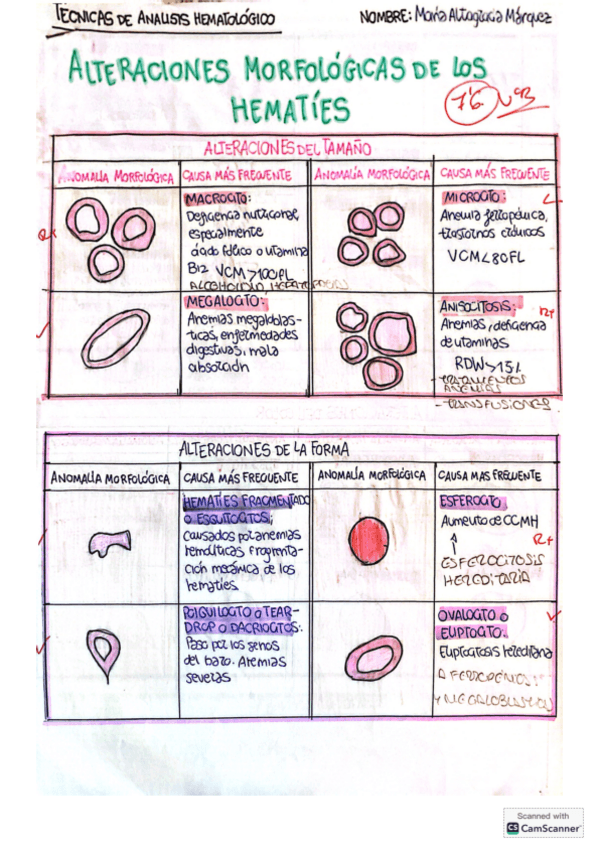 TÉCNICAS DE ANALISIS HEMATOLÓGICO
NOMBRE: María Altagracia Márquez
ALTERACIONES MORFOLÓGICAS DE LOS
HEMATÍES
ALTERACIONES DEL TAMAÑO
ANOMALÍA MORFOLÓGICA
CAUSA MÁS FRECUENTE
ANOMALÍA MORFOLÓGICA
CAUSA MÁS FRECUENTE
MACROCITO:
Deficiencia nutricional,
especialmente
ácido fólico o vitamina
B12 VCM>100FL
MICROCITO:
Anemia ferropénica,
trastornos crónicos
VCM<80FL
MEGALOCITO:
Anemias megaloblás-
ticas, enfermedades
digestivas, mala
absorción
ANISOCITOSIS:
Anemias, deficiencia
de vitaminas
RDW>15%
-TRATAMIENTOS
ANEMIAS
-TRANSFUSIONES
ALTERACIONES DE LA FORMA
ANOMALÍA MORFOLÓGICA
CAUSA MÁS FRECUENTE
ANOMALÍA MORFOLÓGICA
CAUSA MAS FRECUENTE
HEMATÍES FRAGMENTADO
O ESQUITOCITOS:
causados por anemias
hemolíticas fragmenta-
ción mecánica de los
hematíes
ESFEROCITO
Aumento de CCMH
ESFEROCITOSIS
HEREDITARIA
POIQUILOCITO O TEAR-
DROP O DACRIOCITOS:
Paso por los senos
del bazo. Anemias
severas
OVALOCITO O
ELIPTOCITO.
Eliptocitosis hereditaria
Y MEGALOBLASTICAS
Scanned with
CS CamScanner